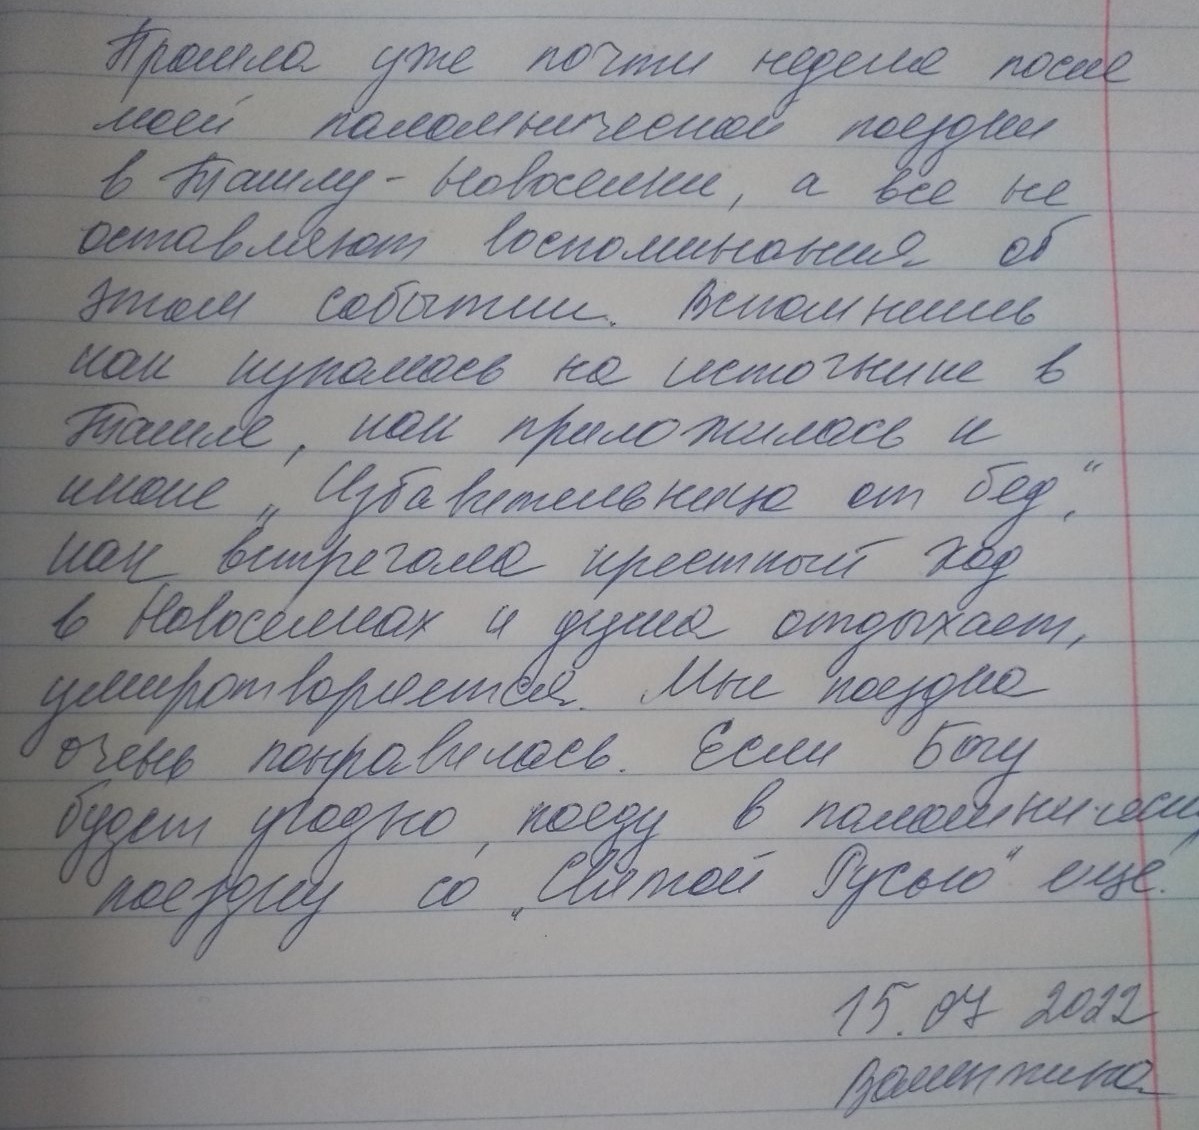 Прошла уже почти неделя после
моей паломнической поездки
в Ташлу-Новоселки, а все не
оставляют воспоминания об
этом событии. Вспомнишь
как купалась на источнике в
Ташле, как приложилась к
иконе „Избавительница от бед",
как встречала крестный ход
в Новоселках и душа отдыхает,
умиротворяется. Мне поездка
очень понравилась. Если Богу
будет угодно, поеду в паломническ
поездку со „Святой Русью" еще.
15.07 2022
Валентина